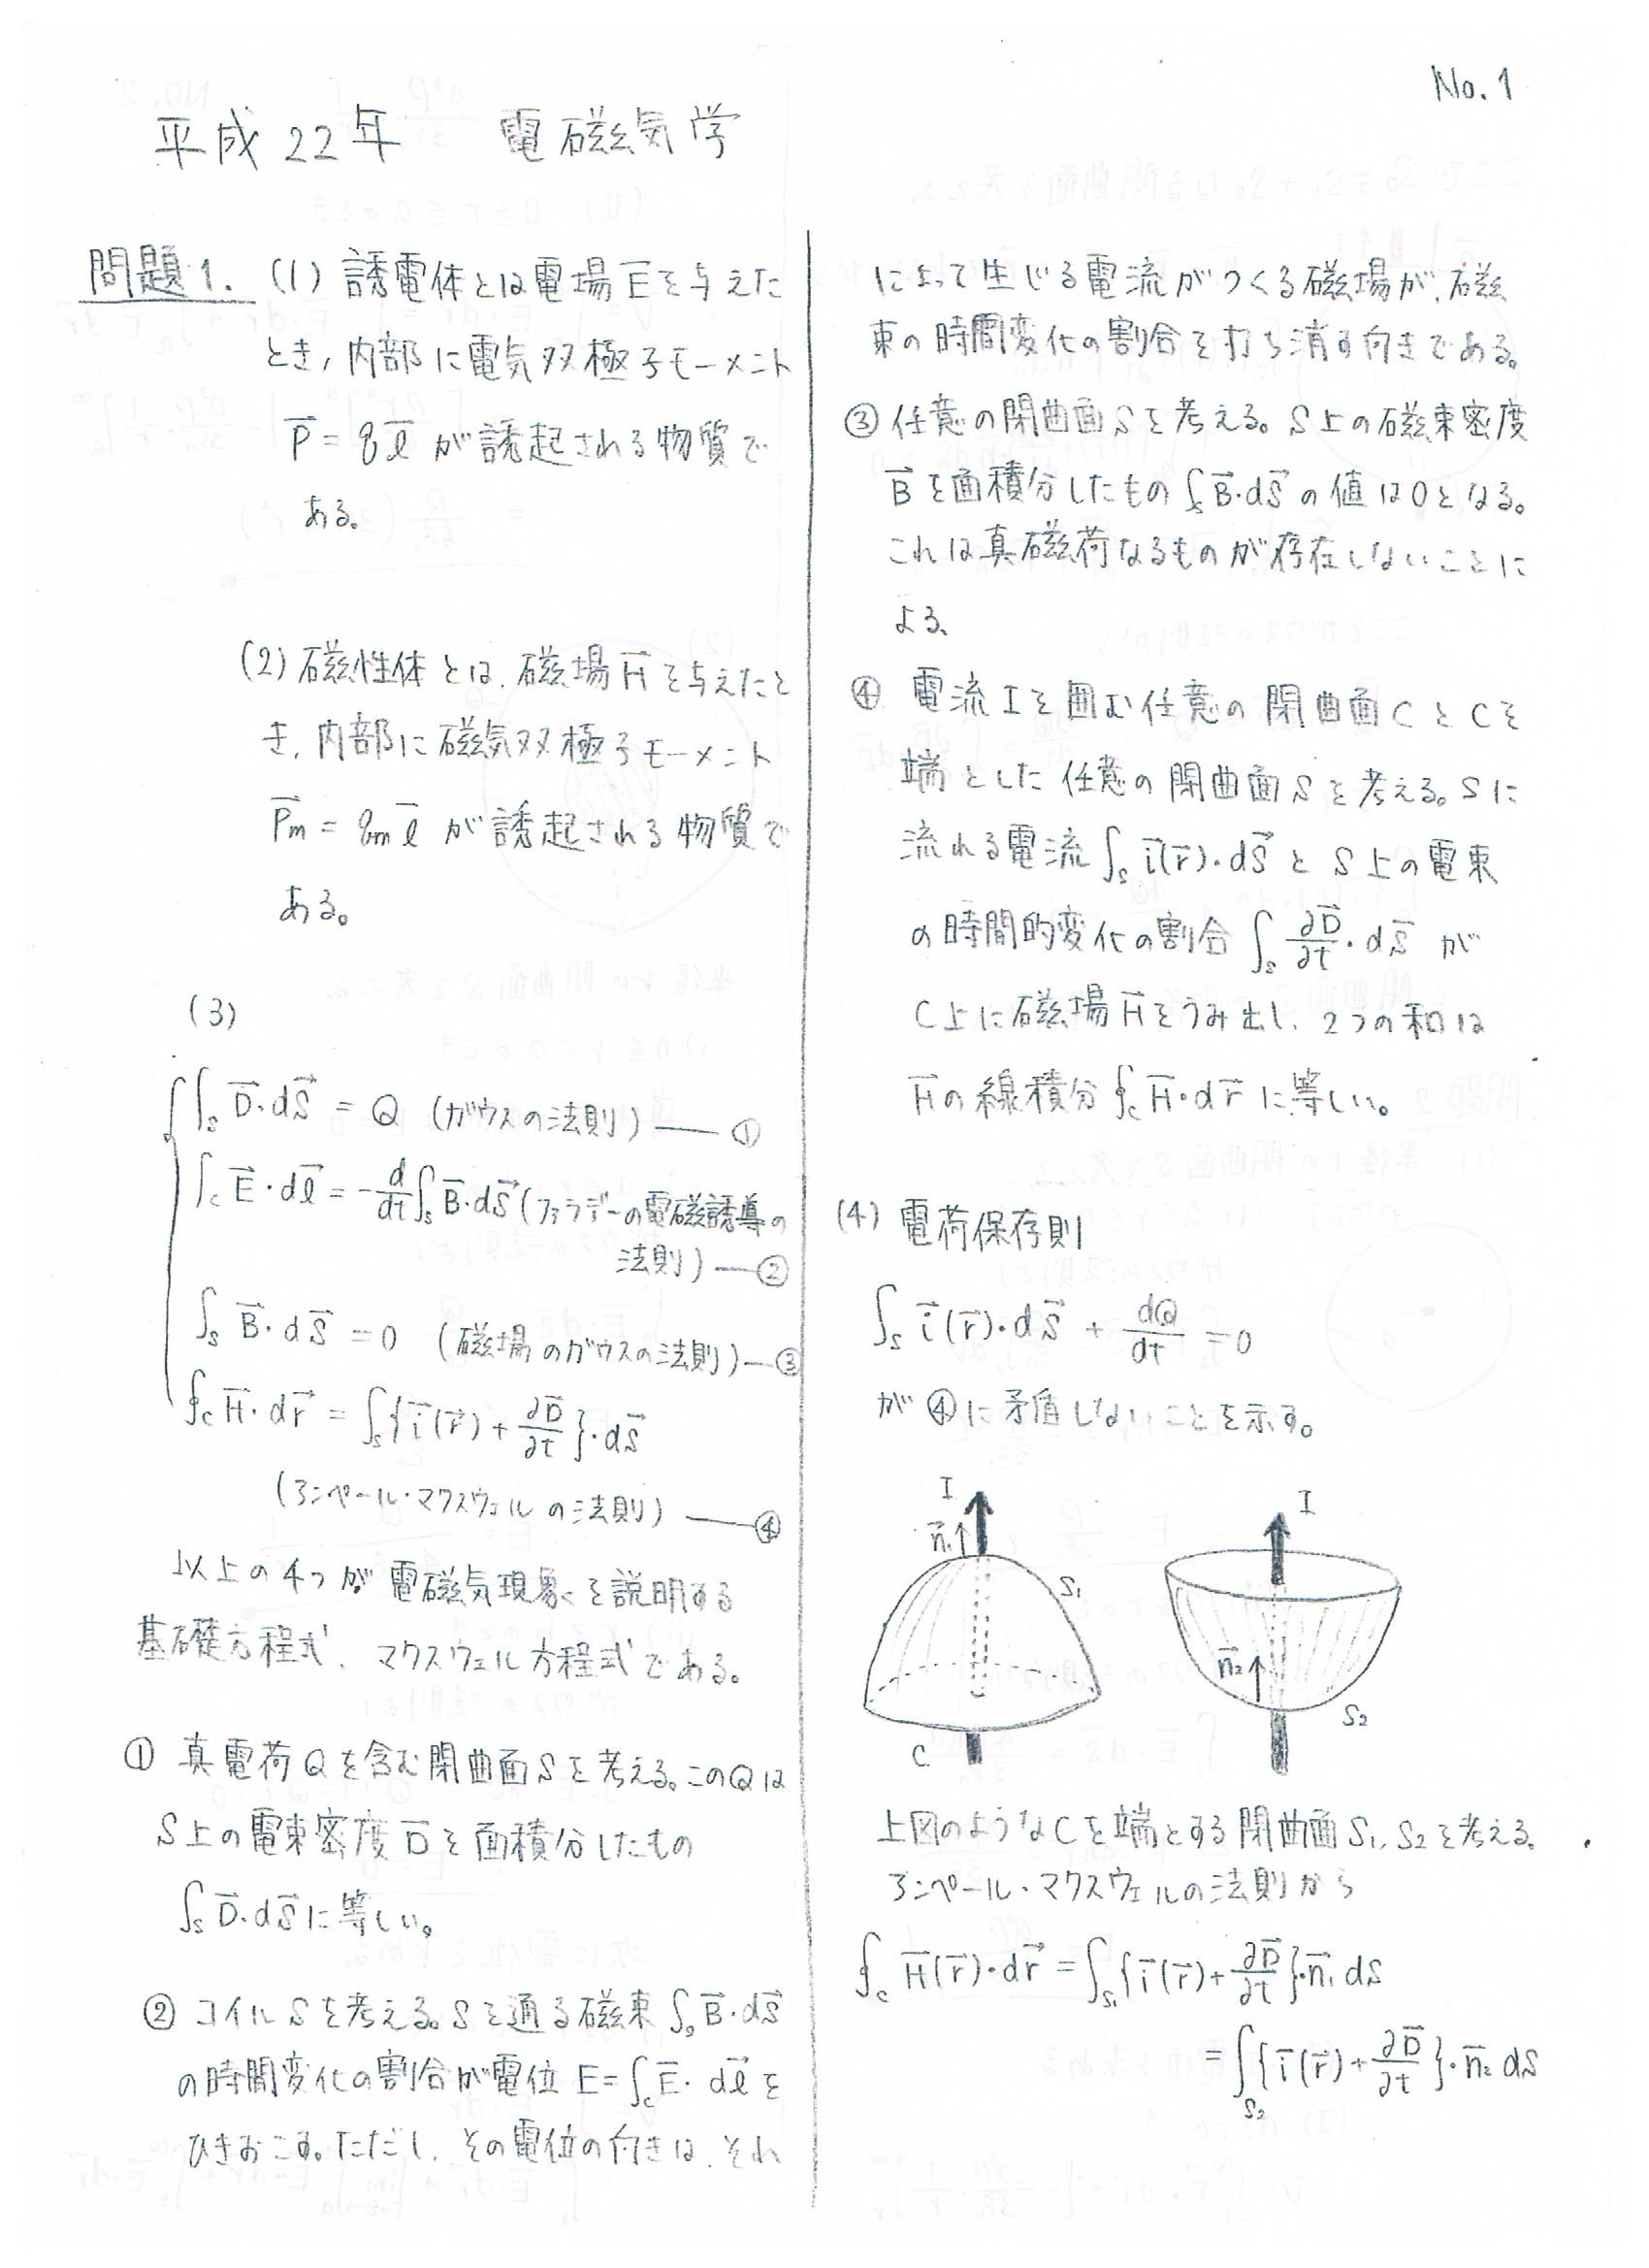 No.1
平成22年 電磁気学
問題1. (1) 誘電体とは電場 $\vec{E}$ を与えた
とき, 内部に電気双極子モーメント
$\vec{P} = q\vec{l}$ が誘起される物質で
ある。
(2) 磁性体とは、磁場 $\vec{H}$ を与えたと
き, 内部に磁気双極子モーメント
$\vec{P}_m = q_m\vec{l}$ が誘起される物質で
ある。
(3)
$\int_S \vec{D}\cdot d\vec{S} = Q$ (ガウスの法則) — ①
$\int_C \vec{E}\cdot d\vec{l} = -\frac{d}{dt}\int_S \vec{B}\cdot d\vec{S}$ (ファラデーの電磁誘導の
法則) — ②
$\int_S \vec{B}\cdot d\vec{S} = 0$ (磁場のガウスの法則) — ③
$\oint_C \vec{H}\cdot d\vec{r} = \int_S \{\vec{i}(\vec{r}) + \frac{\partial \vec{D}}{\partial t}\}\cdot d\vec{S}$
(アンペール・マクスウェルの法則) — ④
以上の4つが電磁気現象を説明する
基礎方程式、マクスウェル方程式である。
① 真電荷Qを含む閉曲面Sを考える。このQは
S上の電束密度 $\vec{D}$ を面積分したもの
$\int_S \vec{D}\cdot d\vec{S}$ に等しい。
② コイルSを考える。Sを通る磁束 $\int_S \vec{B}\cdot d\vec{S}$
の時間変化の割合が電位 $E = \int_C \vec{E}\cdot d\vec{l}$ を
ひきおこす。ただし、その電位の向きは、それ
によって生じる電流がつくる磁場が、磁
束の時間変化の割合を打ち消す向きである。
③ 任意の閉曲面Sを考える。S上の磁束密度
$\vec{B}$ を面積分したもの $\int_S \vec{B}\cdot d\vec{S}$ の値は0となる。
これは真磁荷なるものが存在しないことに
よる、
④ 電流Iを囲む任意の閉曲面CとCを
端とした任意の閉曲面Sを考える。Sに
流れる電流 $\int_S \vec{i}(\vec{r})\cdot d\vec{S}$ とS上の電束
の時間的変化の割合 $\int_S \frac{\partial \vec{D}}{\partial t}\cdot d\vec{S}$ が
C上に磁場 $\vec{H}$ をうみ出し、2つの和は
$\vec{H}$ の線積分 $\oint_C \vec{H}\cdot d\vec{r}$ に等しい。
(4) 電荷保存則
$\int_S \vec{i}(\vec{r})\cdot d\vec{S} + \frac{dQ}{dt} = 0$
が④に矛盾しないことを示す。
I
$\vec{n}_1$
$S_1$
C
I
$\vec{n}_2$
$S_2$
上図のようなCを端とする閉曲面$S_1$, $S_2$を考える。
アンペール・マクスウェルの法則から
$\oint_C \vec{H}(\vec{r})\cdot d\vec{r} = \int_{S_1} \{\vec{i}(\vec{r}) + \frac{\partial \vec{D}}{\partial t}\}\cdot \vec{n}_1 dS$
$= \int_{S_2} \{\vec{i}(\vec{r}) + \frac{\partial \vec{D}}{\partial t}\}\cdot \vec{n}_2 dS$